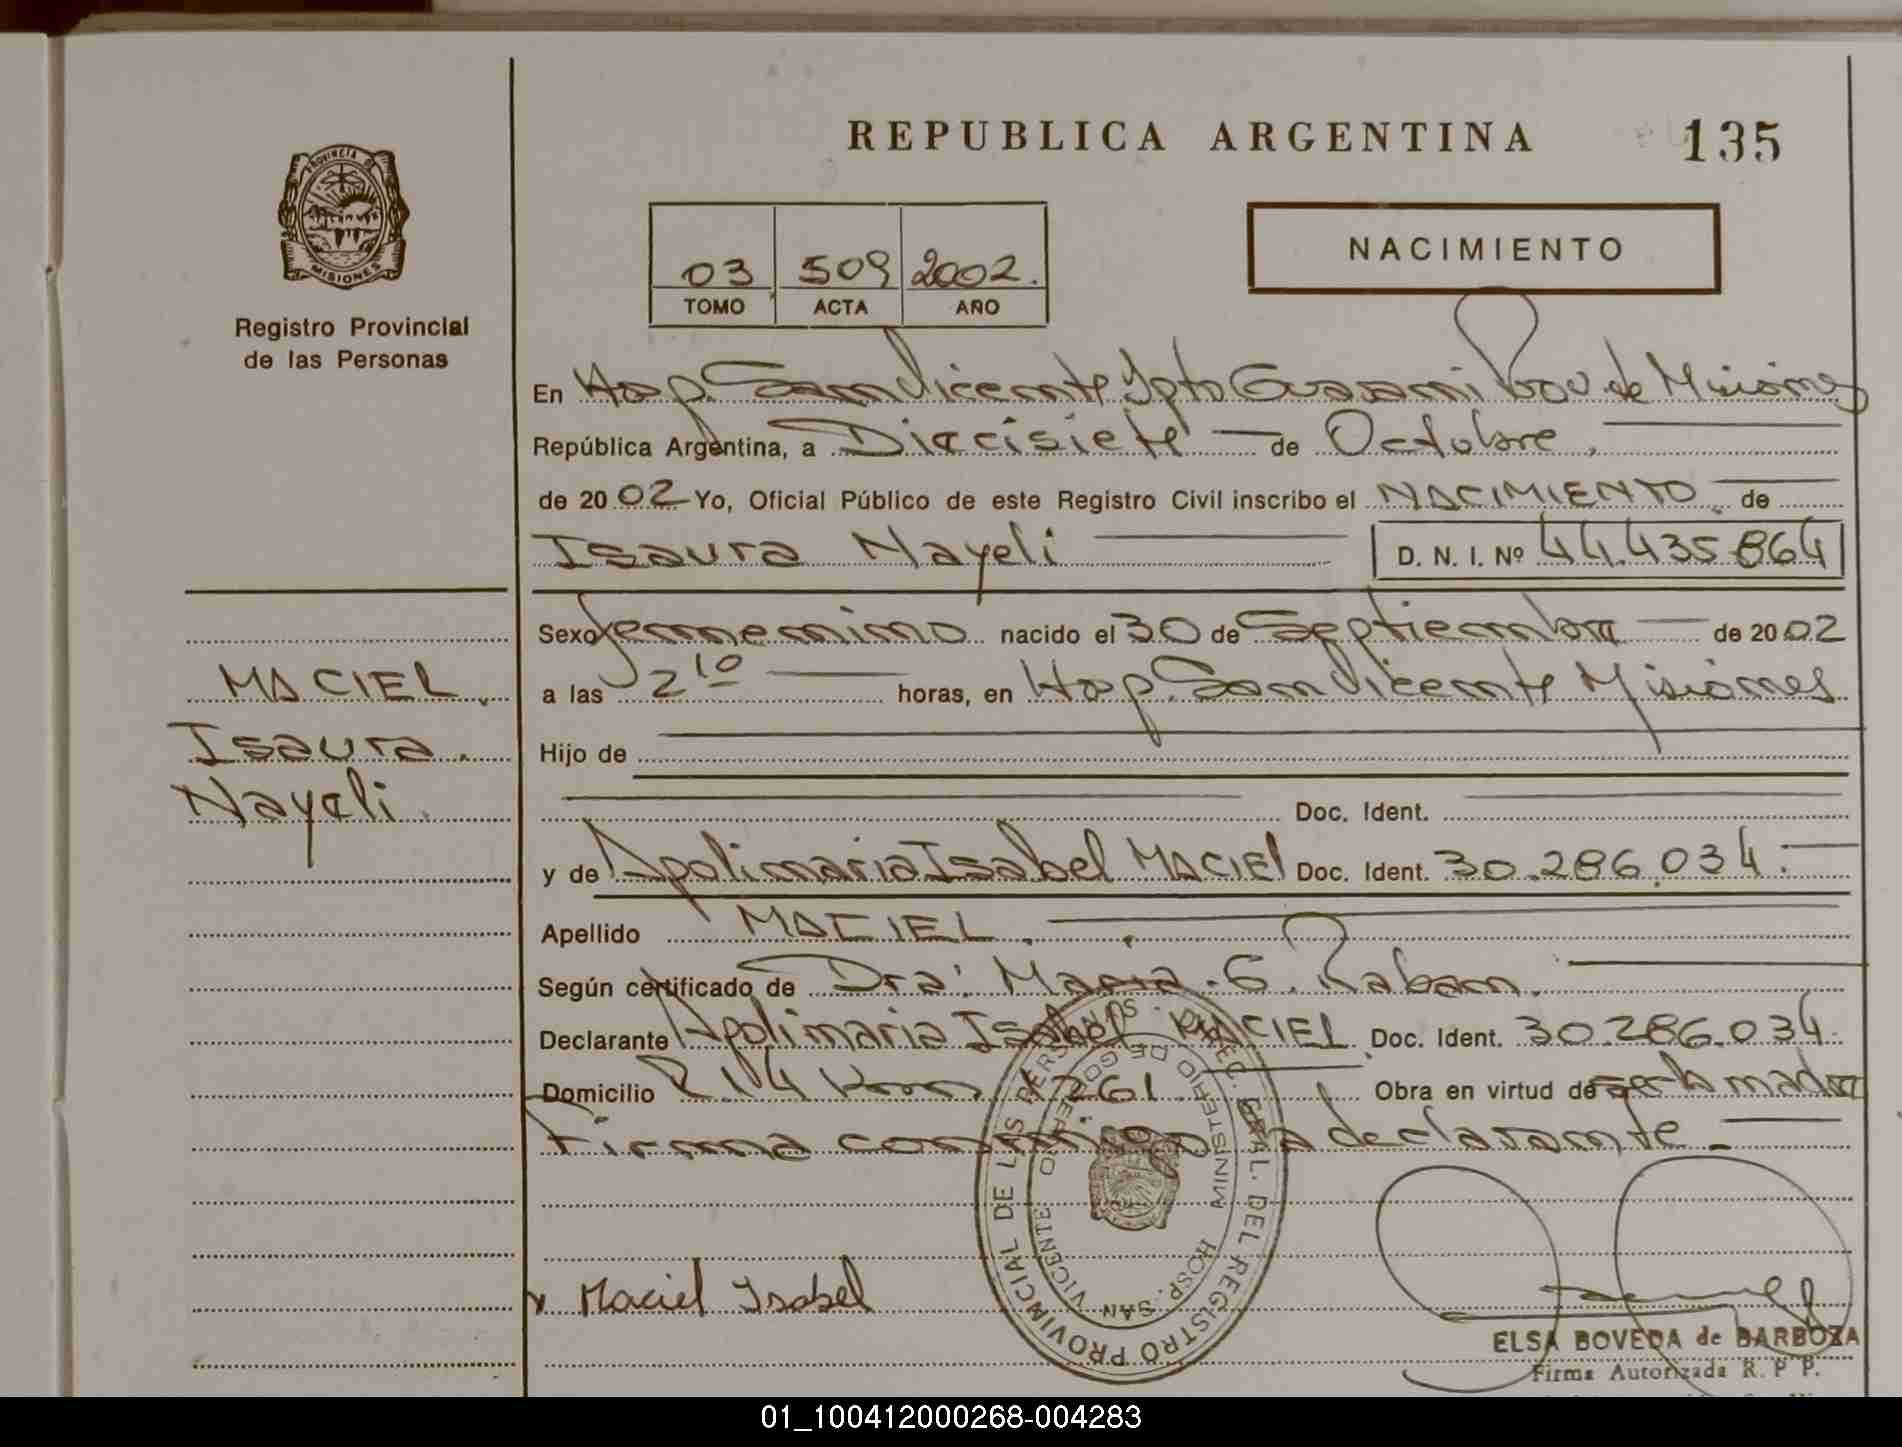 REPUBLICA ARGENTINA 135
PROVINCIA DE MISIONES
Registro Provincial
de las Personas
03 509 2002.
TOMO ACTA AÑO
NACIMIENTO
En Hosp. San Vicente Dpto Guarani Prov de Misiones
República Argentina, a Diecisiete de Octubre
de 2002 Yo, Oficial Público de este Registro Civil inscribo el NACIMIENTO de
Isaura Nayeli D. N. I. Nº 44.435.864
Sexo femenino nacido el 30 de Septiembre de 2002
a las 2 10 horas, en Hosp. San Vicente Misiones
Hijo de
Doc. Ident.
y de Apolinaria Isabel MACIEL Doc. Ident. 30.286.034.
Apellido MACIEL.
Según certificado de Dra: Maria. G. Raban.
Declarante Apolinaria Isabel MACIEL Doc. Ident. 30.286.034.
Domicilio R.14 Km 1261. Obra en virtud de ser la madre
Firma conmigo la declarante.
Maciel Isabel
MACIEL.
Isaura.
Nayeli.
REGISTRO PROVINCIAL DE LAS PERSONAS
MINISTERIO DE GOBIERNO
HOSP. SAN VICENTE
ELSA BOVEDA de BARBOZA
Firma Autorizada R. P. P.
01_100412000268-004283